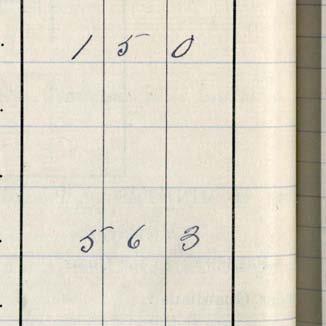 1 5 0
5 6 3